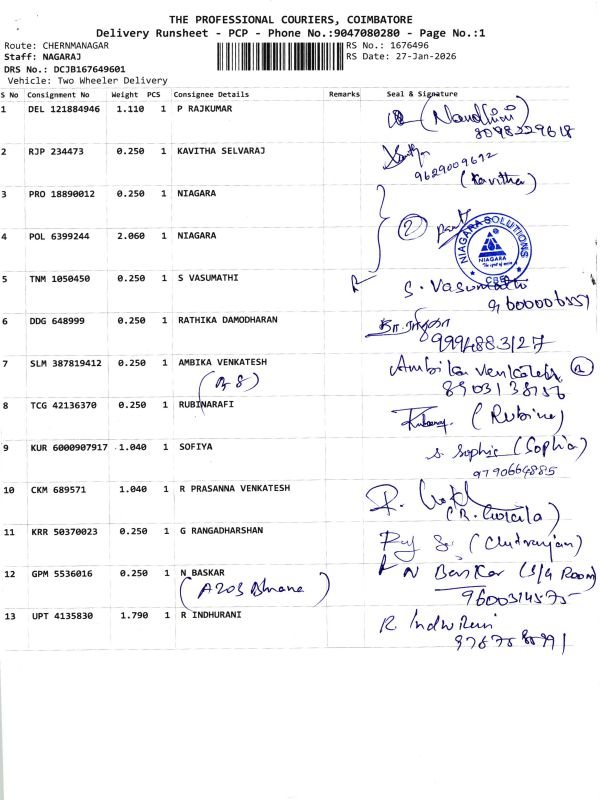 THE PROFESSIONAL COURIERS, COIMBATORE
Delivery Runsheet - PCP - Phone No.:9047080280 - Page No.:1
Route: CHERNMANAGAR RS No.: 1676496
Staff: NAGARAJ RS Date: 27-Jan-2026
DRS No.: DCJB167649601
Vehicle: Two Wheeler Delivery
S No Consignment No Weight PCS Consignee Details Remarks Seal & Signature
1 DEL 121884946 1.110 1 P RAJKUMAR (Nandhini)
8098229618
2 RJP 234473 0.250 1 KAVITHA SELVARAJ
9629009692
(Kavitha)
3 PRO 18890012 0.250 1 NIAGARA
4 POL 6399244 2.060 1 NIAGARA 2
NIAGARA SOLUTIONS
NIAGARA
5 TNM 1050450 0.250 1 S VASUMATHI S. Vasumathi
6 DDG 648999 0.250 1 RATHIKA DAMODHARAN
9994883127
7 SLM 387819412 0.250 1 AMBIKA VENKATESH Ambika Venkatesh 2
(B-8) 8903138756
8 TCG 42136370 0.250 1 RUBINARAFI (Rubina)
9 KUR 6000907917 1.040 1 SOFIYA S. Sophia (Sophia)
9790664885
10 CKM 689571 1.040 1 R PRASANNA VENKATESH
11 KRR 50370023 0.250 1 G RANGADHARSHAN
12 GPM 5536016 0.250 1 N BASKAR N Baskar (S/4 Room)
(A203 Bhvana) 9600314575
13 UPT 4135830 1.790 1 R INDHURANI R Indhu Rani